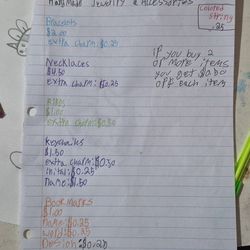 Handmade Jewelry & Accessories
Colored
String
.25
Bracelets
$2.00
extra charm: $0.25
Necklaces
$4.50
extra charm: $0.25
if you buy 2
or more items
you get $0.50
off each item
Rings
$1.00
extra charm: $0.50
Keychains
$1.50
extra charm: $0.50
initial: $0.25
name: $1.50
Bookmarks
$1.00
name: $0.25
word: $0.25
Design: $0.20